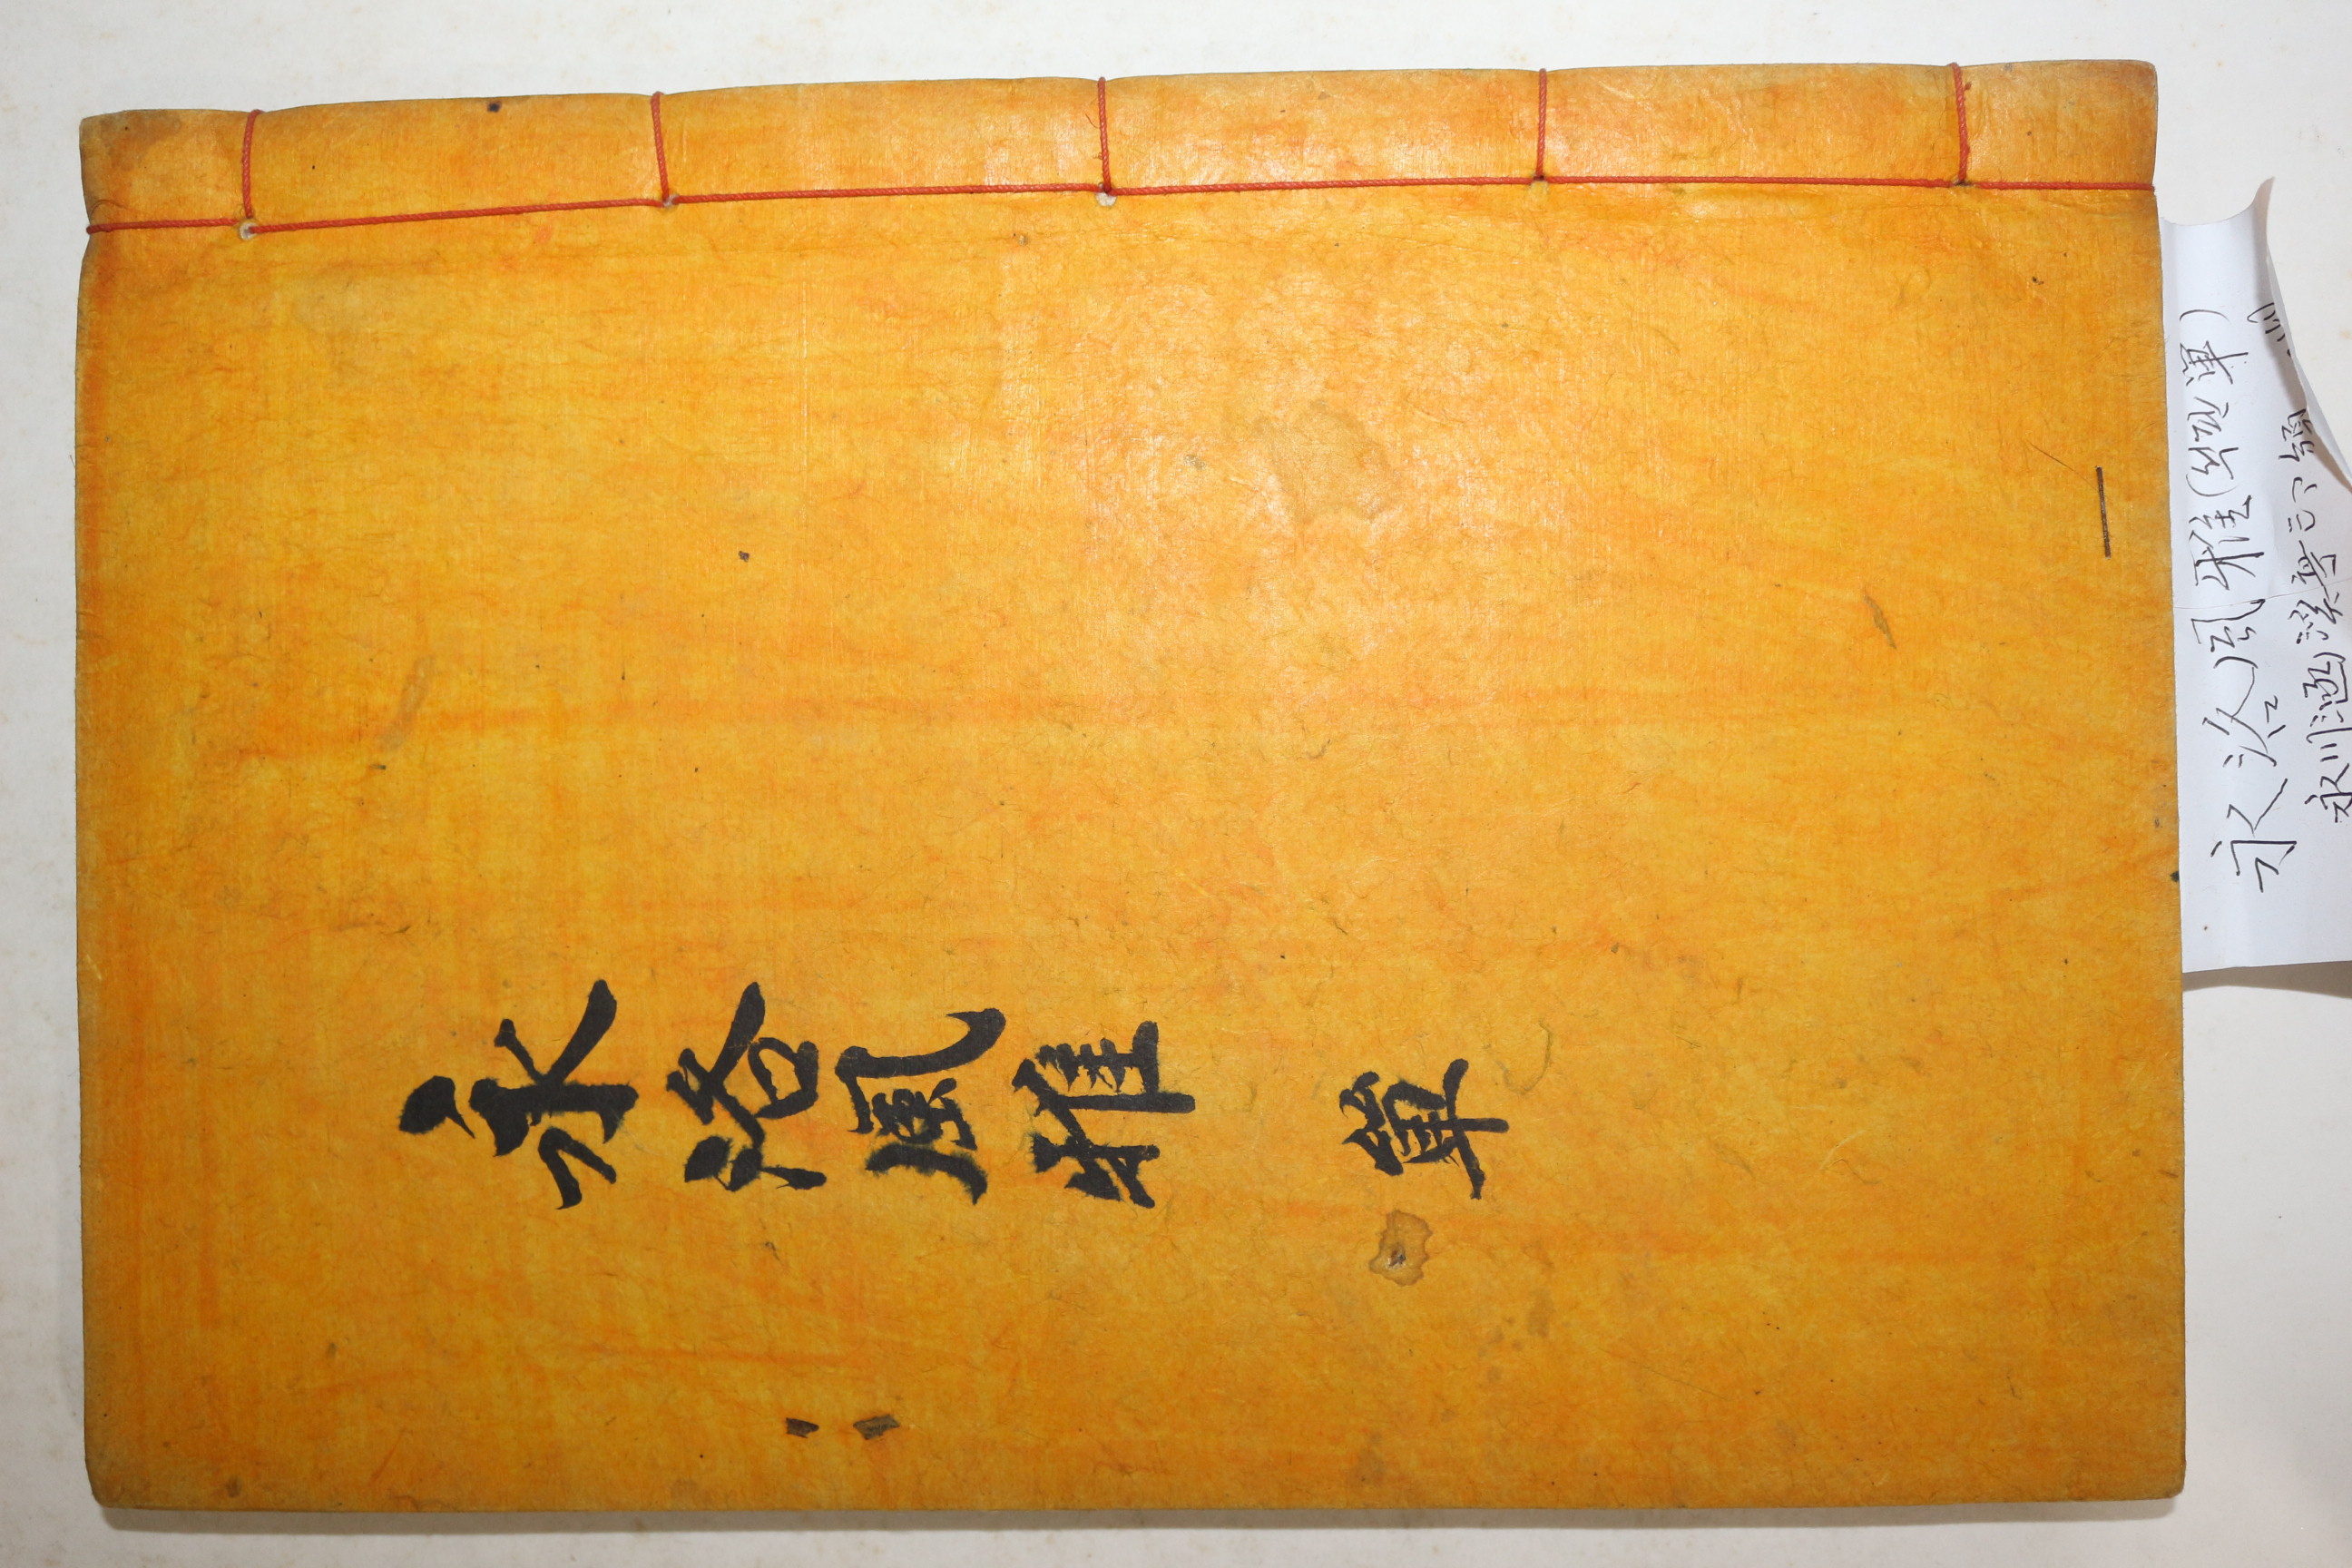 永洛風雅 單
永洛風雅(석판單)
永川涵溪亭印頒